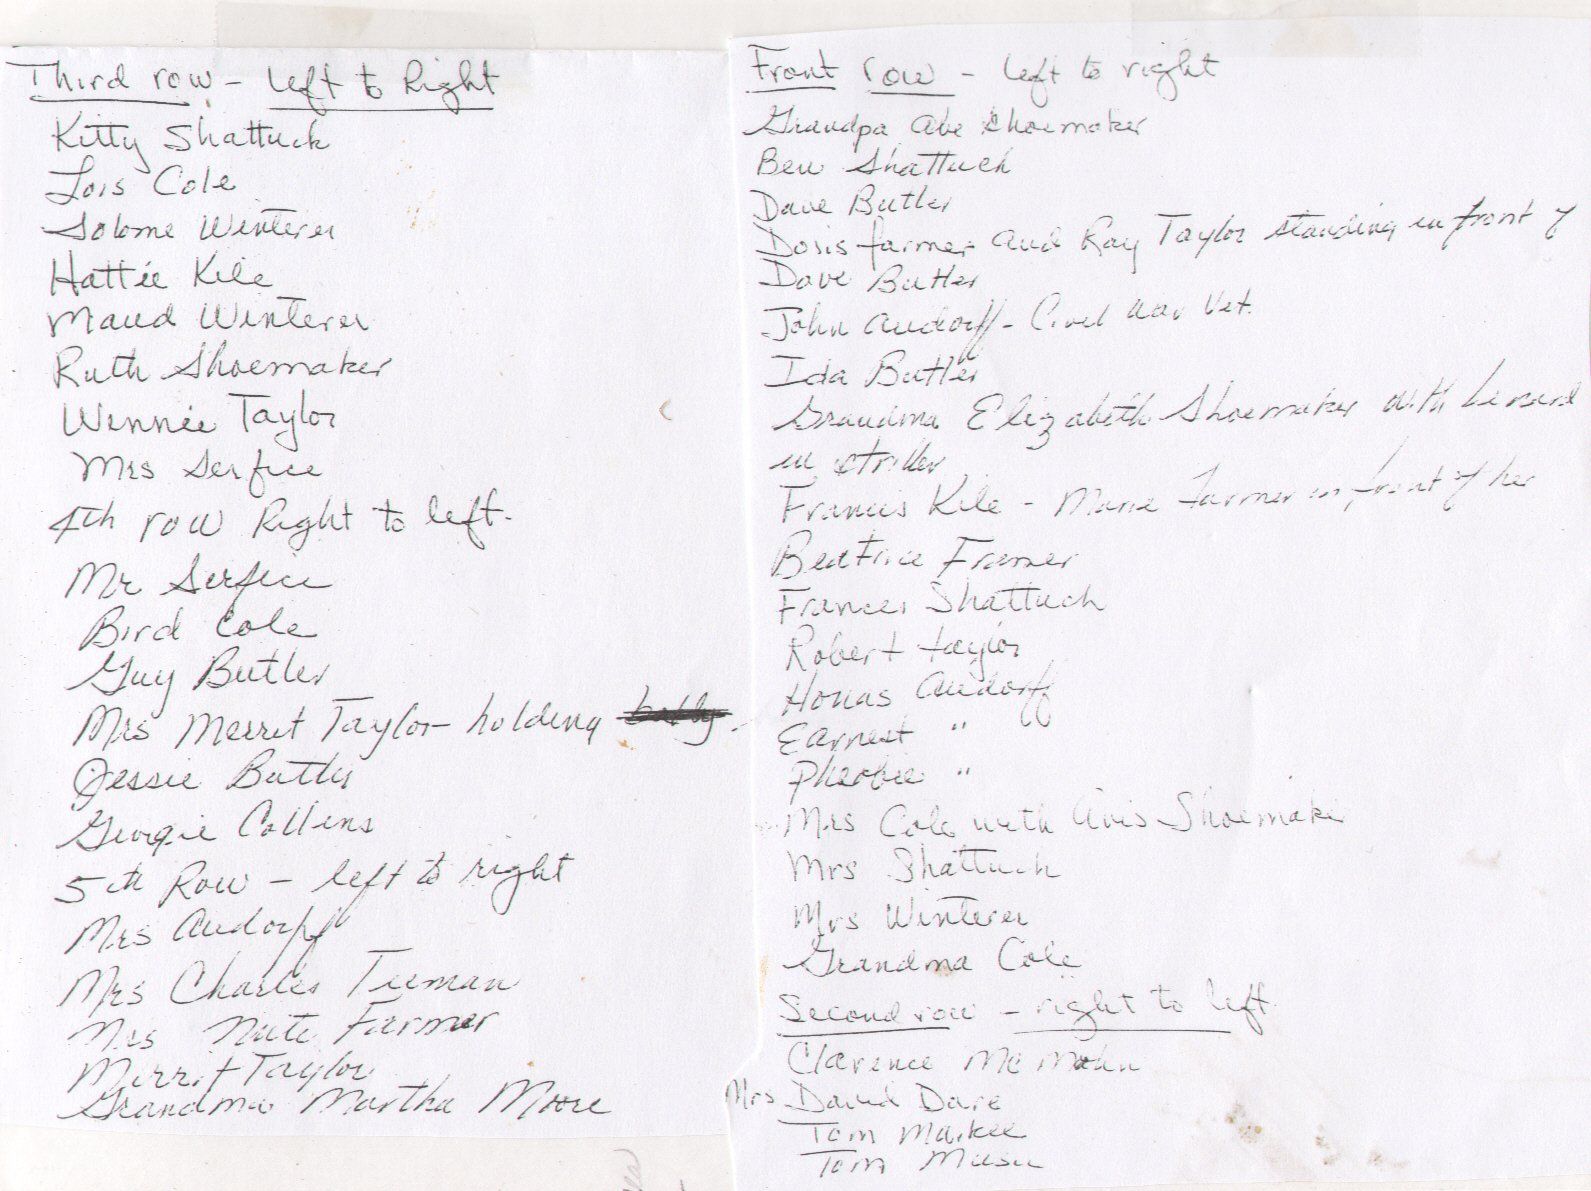 Third row - Left to Right
Kitty Shattuck
Lois Cole
Solome Winterer
Hattie Kile
Maud Winterer
Ruth Shoemaker
Winnie Taylor
Mrs Serfice
4th row Right to left.
Mr Serfice
Bird Cole
Guy Butler
Mrs Merrit Taylor - holding
Jessie Butler
Georgie Collins
5th Row - left to right
Mrs Audorff
Mrs Charles Teeman
Mrs Nate Farmer
Merrit Taylor
Grandma Martha Moore
Front row - left to right
Grandpa Abe Shoemaker
Ben Shattuck
Dave Butler
Doris farmer and Ray Taylor standing in front of
Dave Butler
John Audorff - Civil War Vet.
Ida Butler
Grandma Elizabeth Shoemaker with Lenard
in stroller
Francis Kile - Marie Farmer in front of her
Beatrice Framer
Frances Shattuck
Robert taylor
Honas Audorff
Earnest "
Pheobee "
Mrs Cole with Avis Shoemaker
Mrs Shattuck
Mrs Winterer
Grandma Cole
Second row - right to left.
Clarence McMahn
Mrs David Dare
Tom Markee
Tom